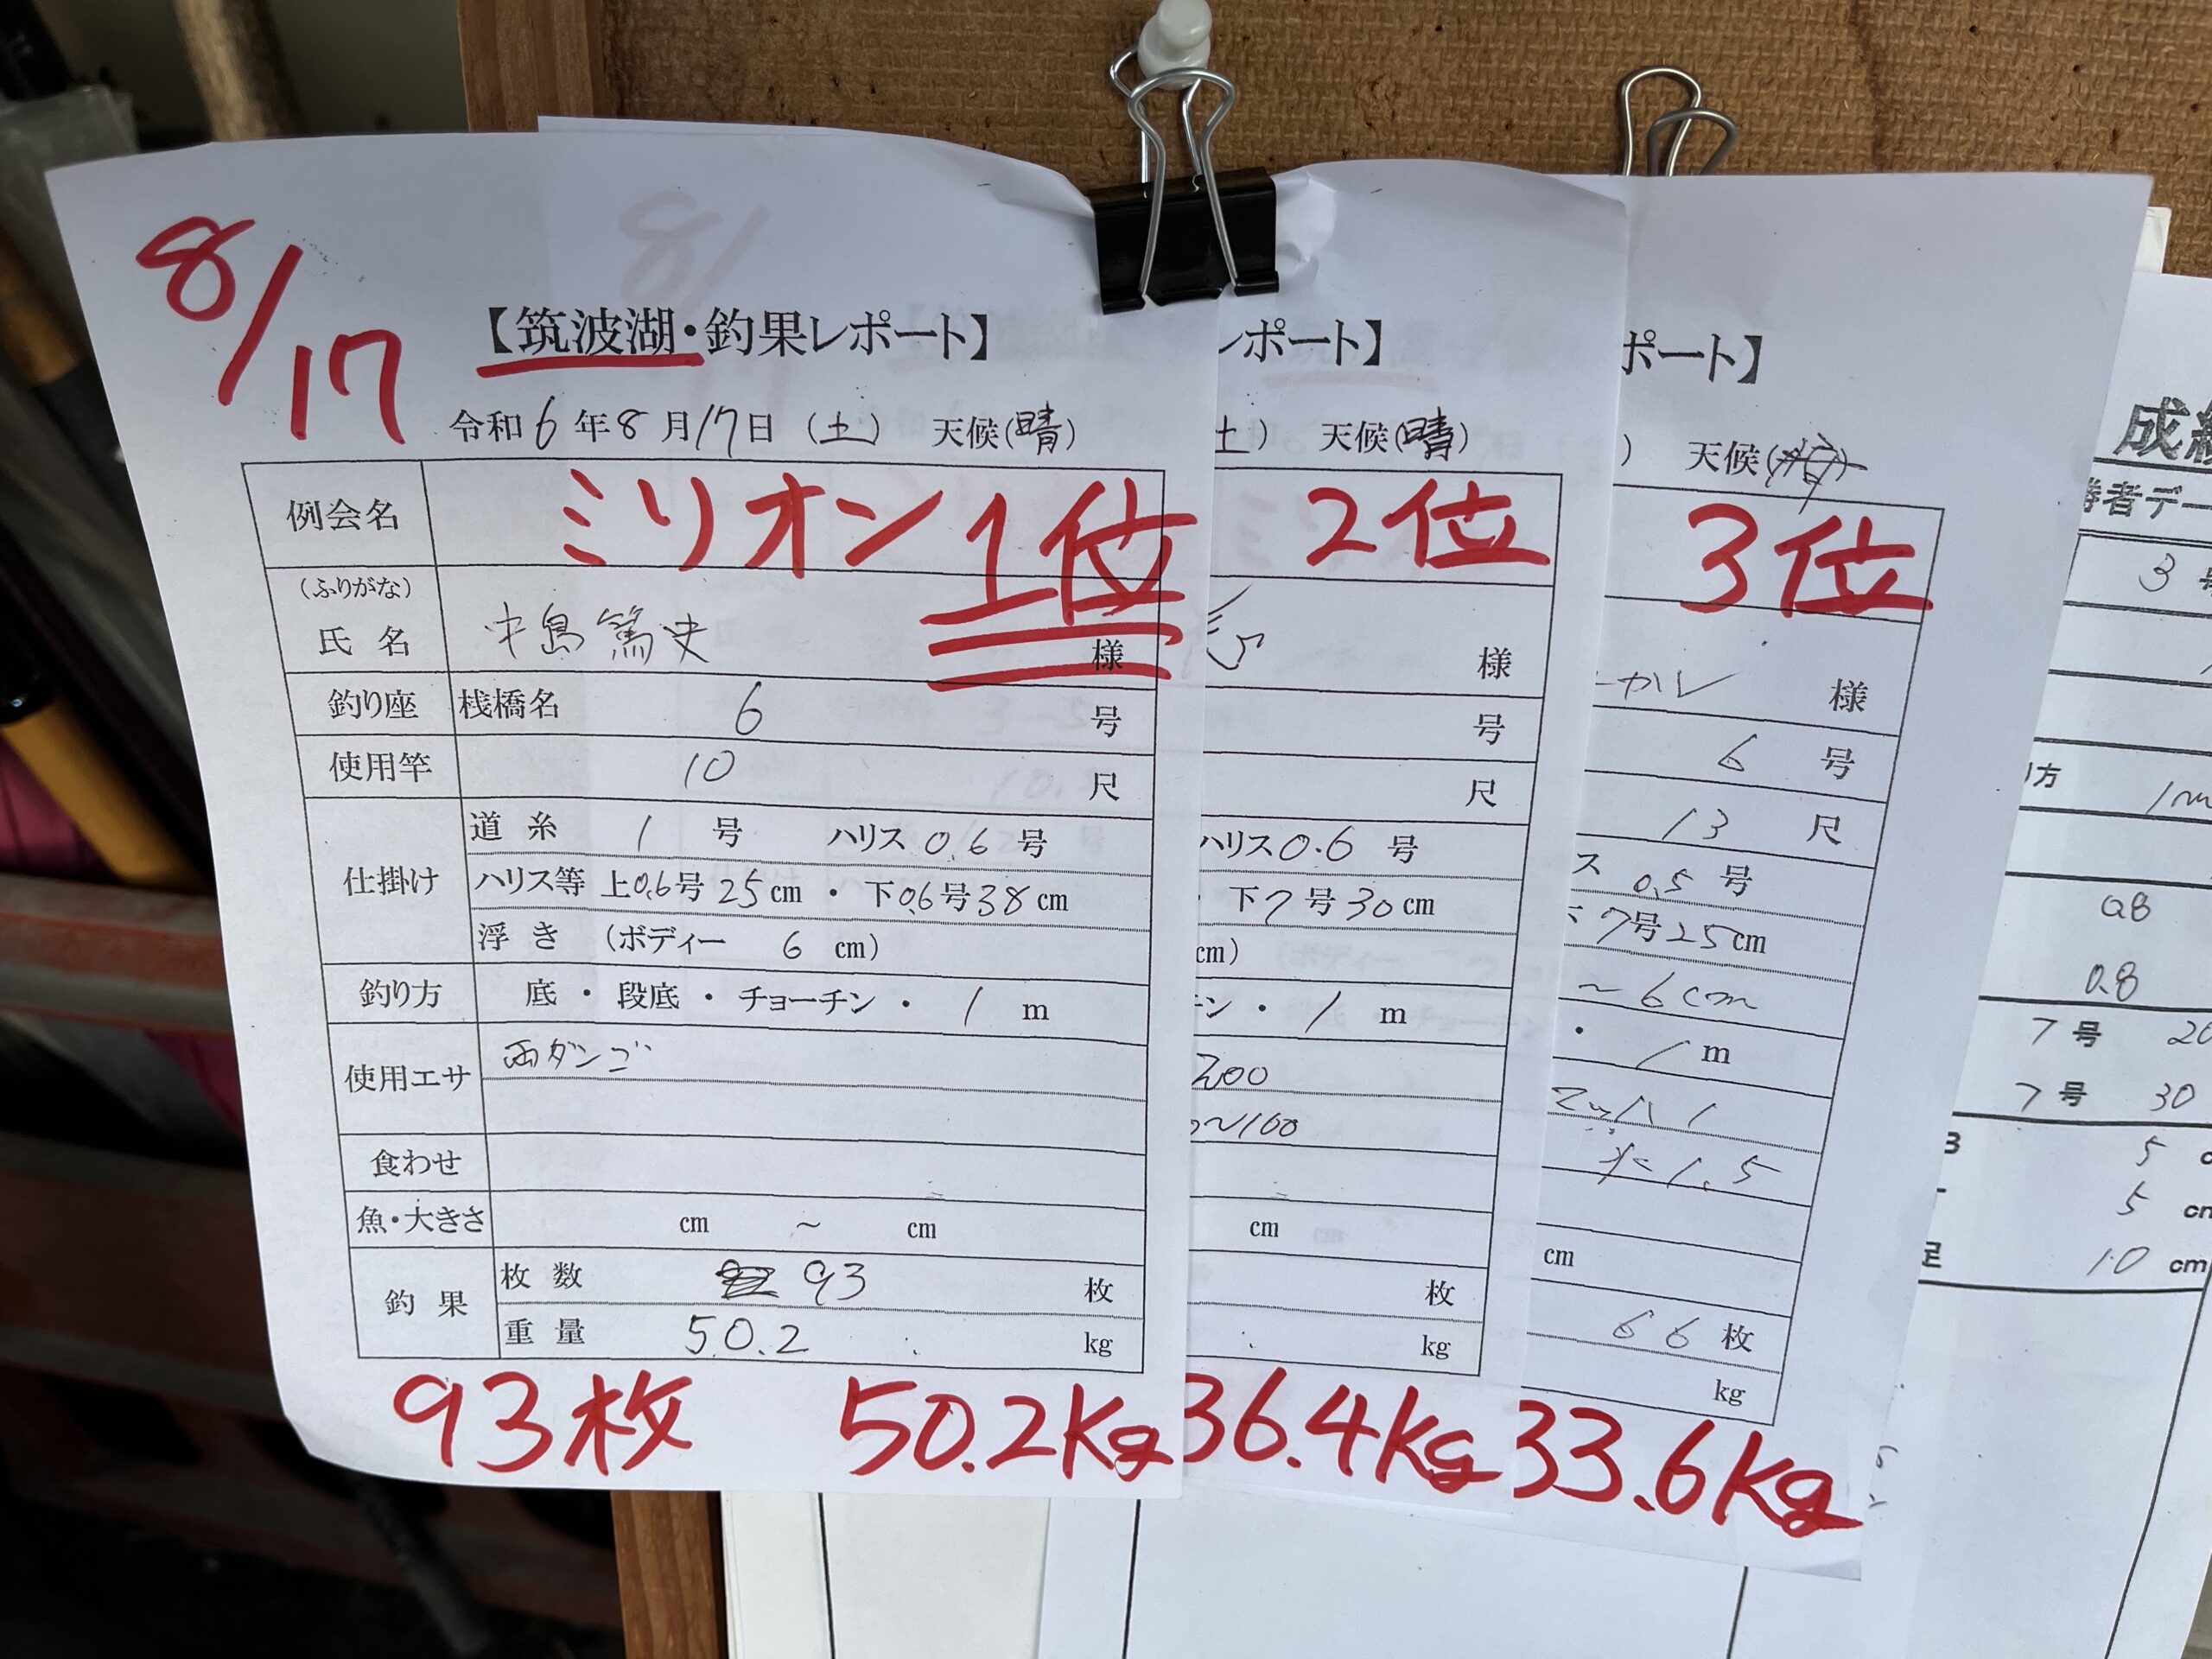 8/17
【筑波湖・釣果レポート】
令和6年8月17日（土） 天候（晴）
例会名 ミリオン 1位
（ふりがな）
氏名 中島篤史 様
釣り座 桟橋名 6 号
使用竿 10 尺
仕掛け 道糸 1 号 ハリス 0.6 号
ハリス等 上0.6号 25cm ・ 下0.6号 38cm
浮き （ボディー 6 cm）
釣り方 底 ・ 段底 ・ チョーチン ・ 1 m
使用エサ 両ダンゴ
食わせ
魚・大きさ cm ～ cm
釣果 枚数 93 枚
重量 50.2 kg
93枚 50.2Kg
レポート】
土） 天候（晴）
2位
様
号
尺
ハリス 0.6 号
・ 下7号 30cm
cm）
ン ・ 1 m
200
～100
cm
枚
kg
36.4Kg
ポート】
） 天候（
3位
様
6 号
13 尺
ス 0.5 号
7号 25cm
～6cm
・ 1 m
1.5
cm
66枚
kg
33.6Kg
成績
勝者デー
3 号
り方 1m
0.8
0.8
7号 20
7号 30
5
5 cm
10 cm